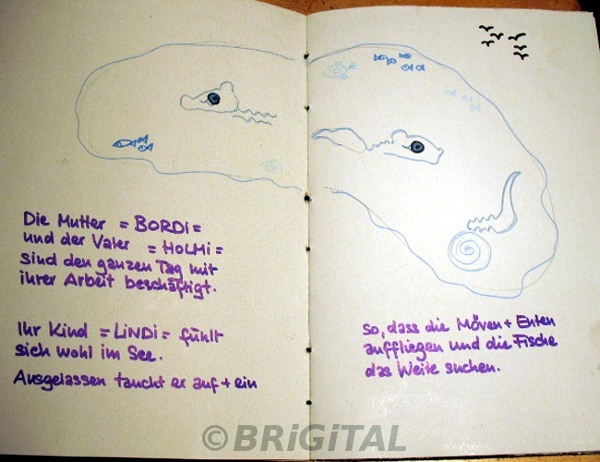 Die Mutter =BORDi=
und der Vater =HOLMi=
sind den ganzen Tag mit
ihrer Arbeit beschäftigt.
Ihr Kind =LiNDi= fühlt
sich wohl im See.
Ausgelassen taucht er auf + ein
so, dass die Möven + Enten
auffliegen und die Fische
das Weite suchen.
© BRiGiTAL